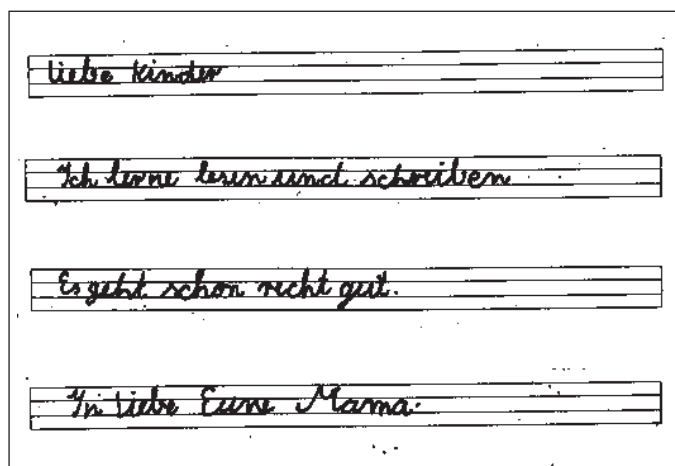 Liebe Kinder
Ich lerne lesen und schreiben
Es geht schon recht gut.
In Liebe Eure Mama.